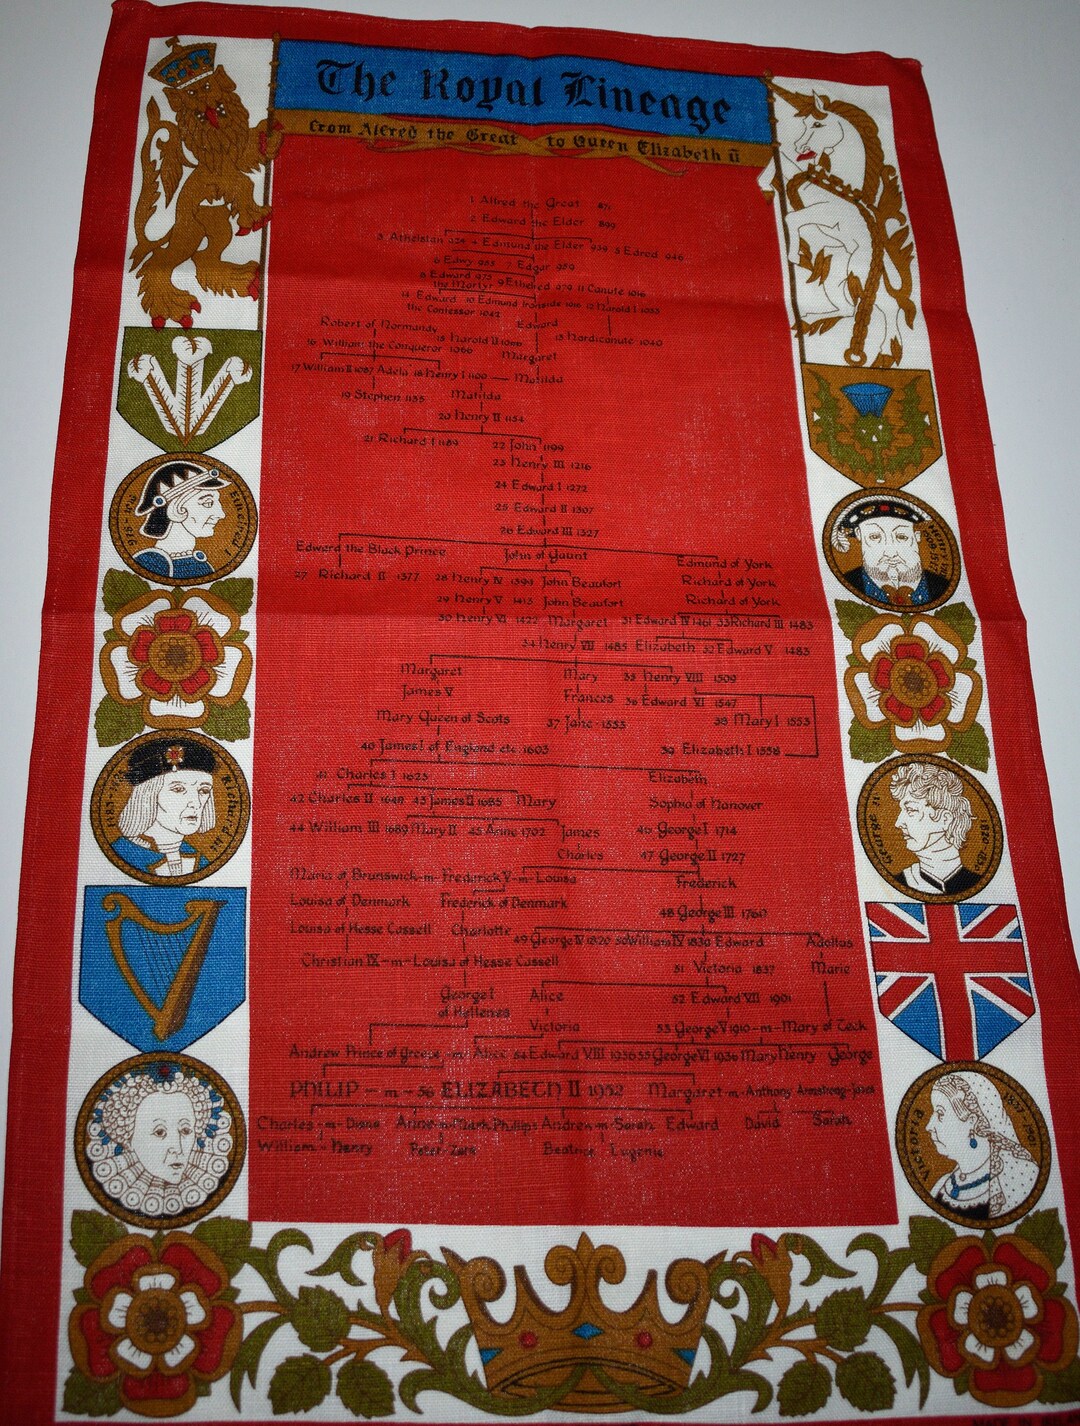 The Royal Lineage
from Alfred the Great to Queen Elizabeth II
1 Alfred the Great 871
2 Edward the Elder 899
3 Athelstan 924 4 Edmund the Elder 939 5 Edred 946
6 Edwy 955 7 Edgar 959
8 Edward 975 the Martyr 9 Ethelred 979 11 Canute 1016
14 Edward the Confessor 1042 10 Edmund Ironside 1016 12 Harold I 1035
Robert of Normandy Edward
15 Harold II 1066 13 Hardicanute 1040
16 William the Conqueror 1066 Margaret
17 William II 1087 Adela 18 Henry I 1100 — Matilda
19 Stephen 1135 Matilda
20 Henry II 1154
21 Richard I 1189 22 John 1199
23 Henry III 1216
24 Edward I 1272
25 Edward II 1307
26 Edward III 1327
Edward the Black Prince John of Gaunt Edmund of York
27 Richard II 1377 28 Henry IV 1399 John Beaufort Richard of York
29 Henry V 1413 John Beaufort Richard of York
30 Henry VI 1422 Margaret 31 Edward IV 1461 33 Richard III 1483
34 Henry VII 1485 Elizabeth 32 Edward V 1483
Margaret Mary 35 Henry VIII 1509
James V Frances 36 Edward VI 1547
Mary Queen of Scots 37 Jane - 1553 38 Mary I 1553
40 James I of England etc 1603 39 Elizabeth I 1558
41 Charles I 1625 Elizabeth
42 Charles II 1649 43 James II 1685 Mary Sophia of Hanover
44 William III 1689 Mary II 45 Anne 1702 James 46 George I 1714
Charles 47 George II 1727
Maria of Brunswick - m - Frederick V - m - Louisa Frederick
Louisa of Denmark Frederick of Denmark
48 George III 1760
Louisa of Hesse Cassell Charlotte 49 George IV 1820 50 William IV 1830 Edward Adolfus
Christian IX - m - Louisa of Hesse Cassell 51 Victoria 1837 Marie
George I of Hellenes Alice 52 Edward VII 1901
Victoria 53 George V 1910 - m - Mary of Teck
Andrew Prince of Greece - m - Alice 54 Edward VIII 1936 55 George VI 1936 Mary Henry George
PHILIP — m - 56 ELIZABETH II 1952 Margaret - m - Anthony Armstrong-Jones
Charles - m - Diana Anne - m - Mark Phillips Andrew - m - Sarah Edward David Sarah
William - Henry Peter - Zara Beatrice Eugenie
Ethelred I
Henry VIII
1483-1485 Richard III
George IV 1820 1830
Victoria 1837-1901